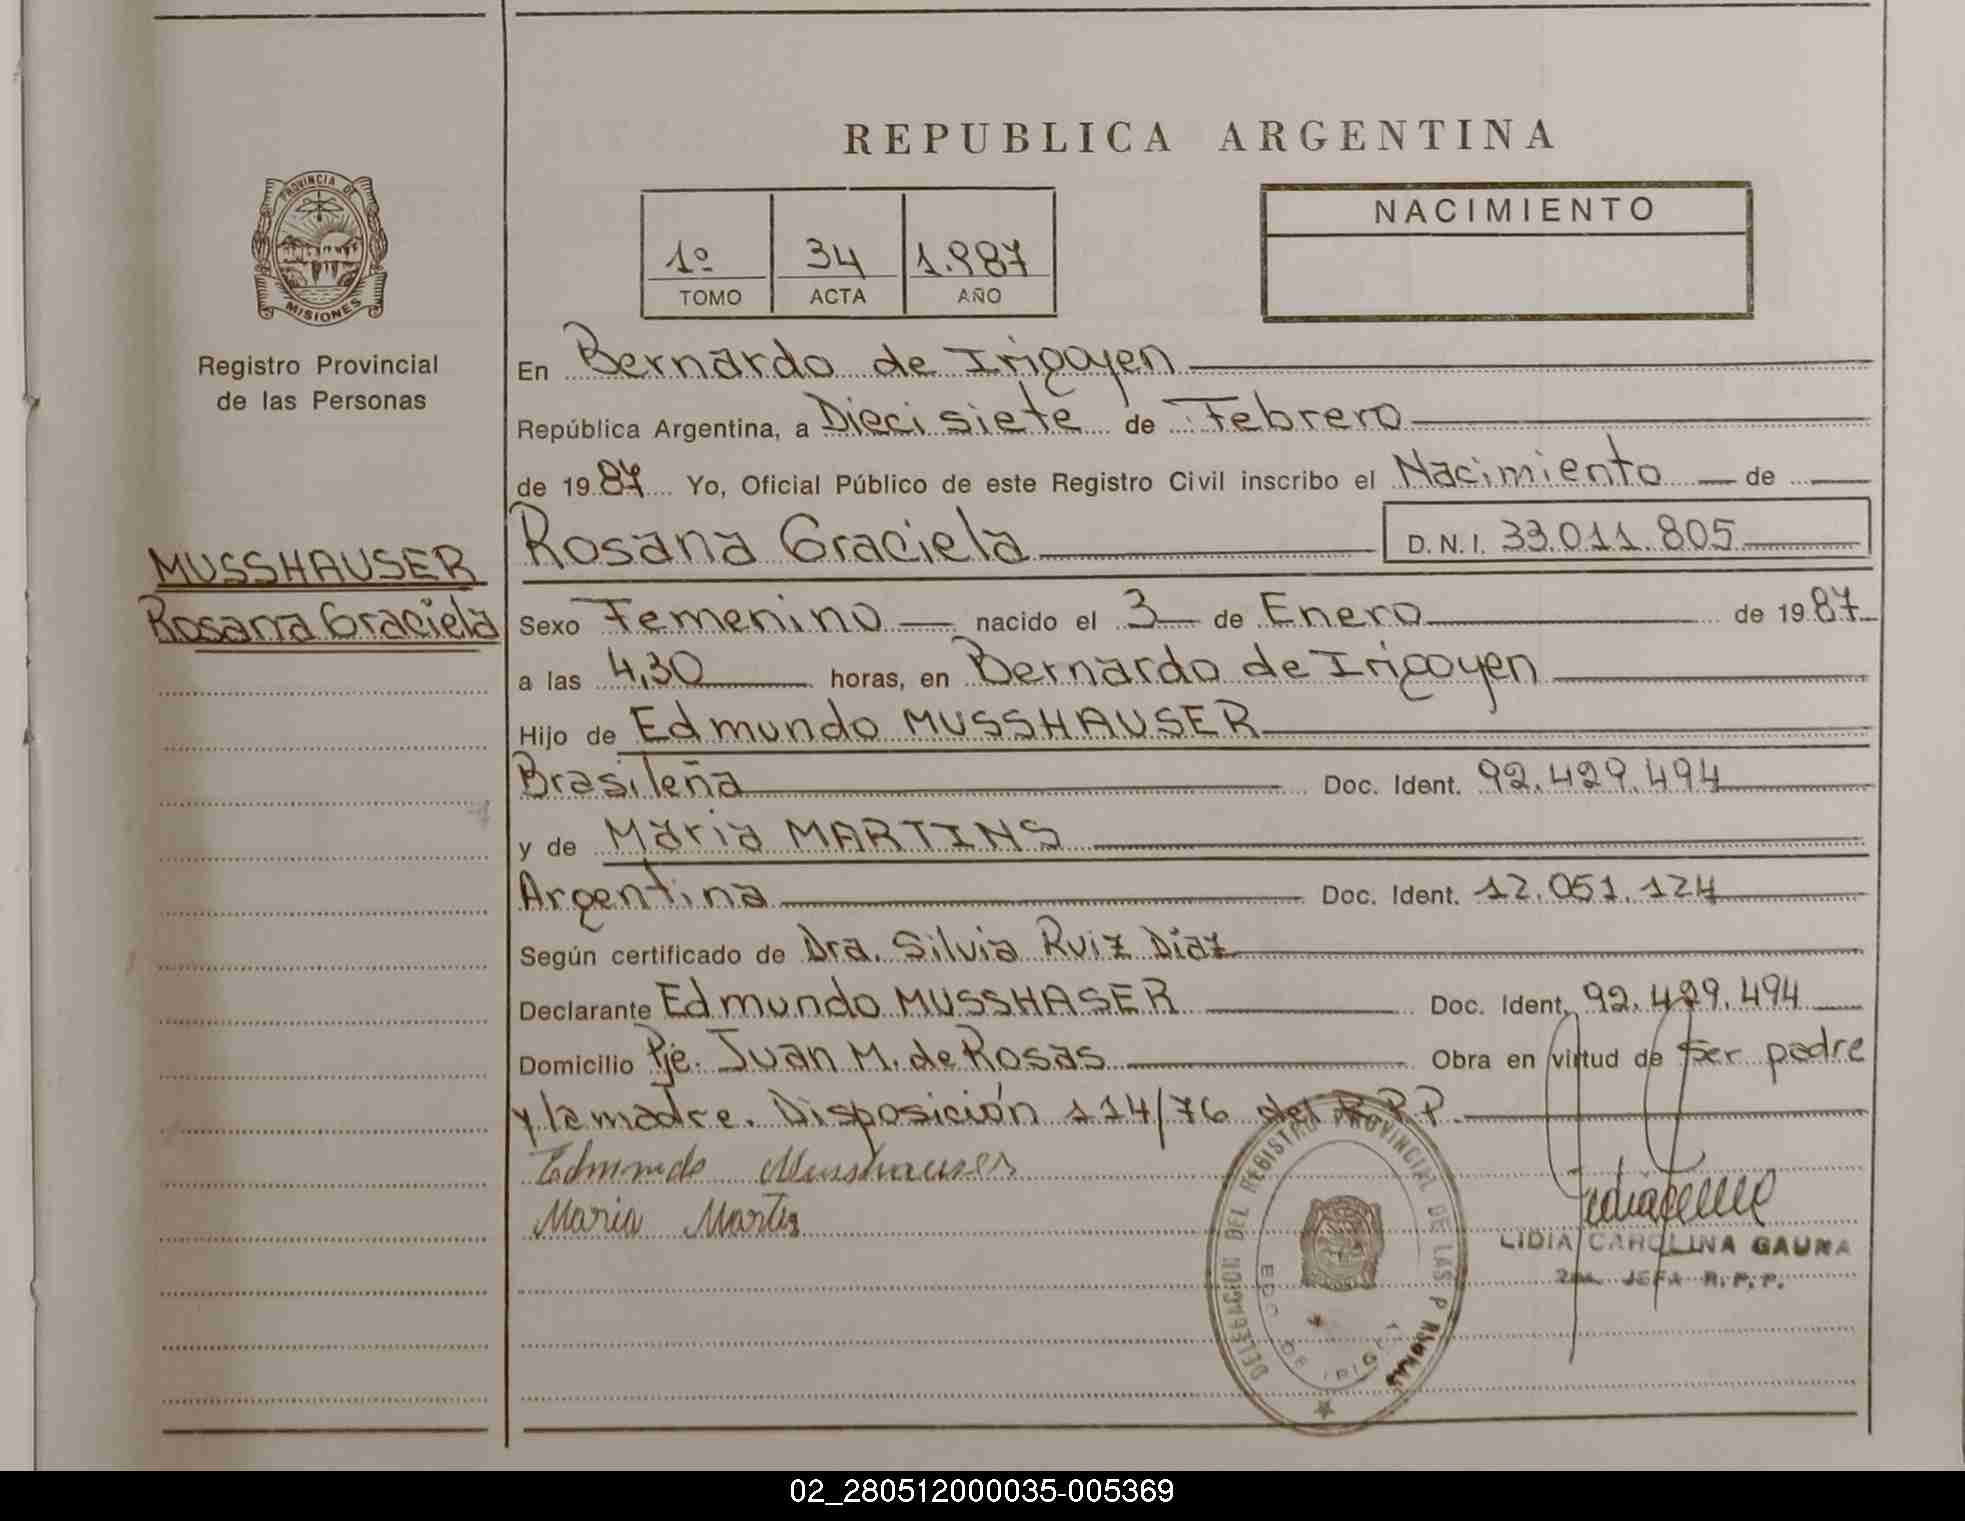 REPUBLICA ARGENTINA
PROVINCIA DE
MISIONES
Registro Provincial
de las Personas
1º 34 1.987
TOMO ACTA AÑO
NACIMIENTO
En Bernardo de Irigoyen
República Argentina, a Dieci siete de Febrero
de 1987 Yo, Oficial Público de este Registro Civil inscribo el Nacimiento de
Rosana Graciela D.N.I. 33.011.805
MUSSHAUSER
Rosana Graciela
Sexo Femenino nacido el 3 de Enero de 1987
a las 4,30 horas, en Bernardo de Irigoyen
Hijo de Edmundo MUSSHAUSER
Brasileña Doc. Ident. 92.429.494
y de Maria MARTINS
Argentina Doc. Ident. 12.051.124
Según certificado de Dra. Silvia Ruiz Diaz
Declarante Edmundo MUSSHASER Doc. Ident. 92.429.494
Domicilio Pje. Juan M. de Rosas Obra en virtud de ser padre
y la madre. Disposición 114/76 del R.P.P.
Edmundo Musshauser
Maria Martis
DELEGACION DEL REGISTRO PROVINCIAL DE LAS
LIDIA CAROLINA GAUNA
JEFA R.P.P.
02_280512000035-005369